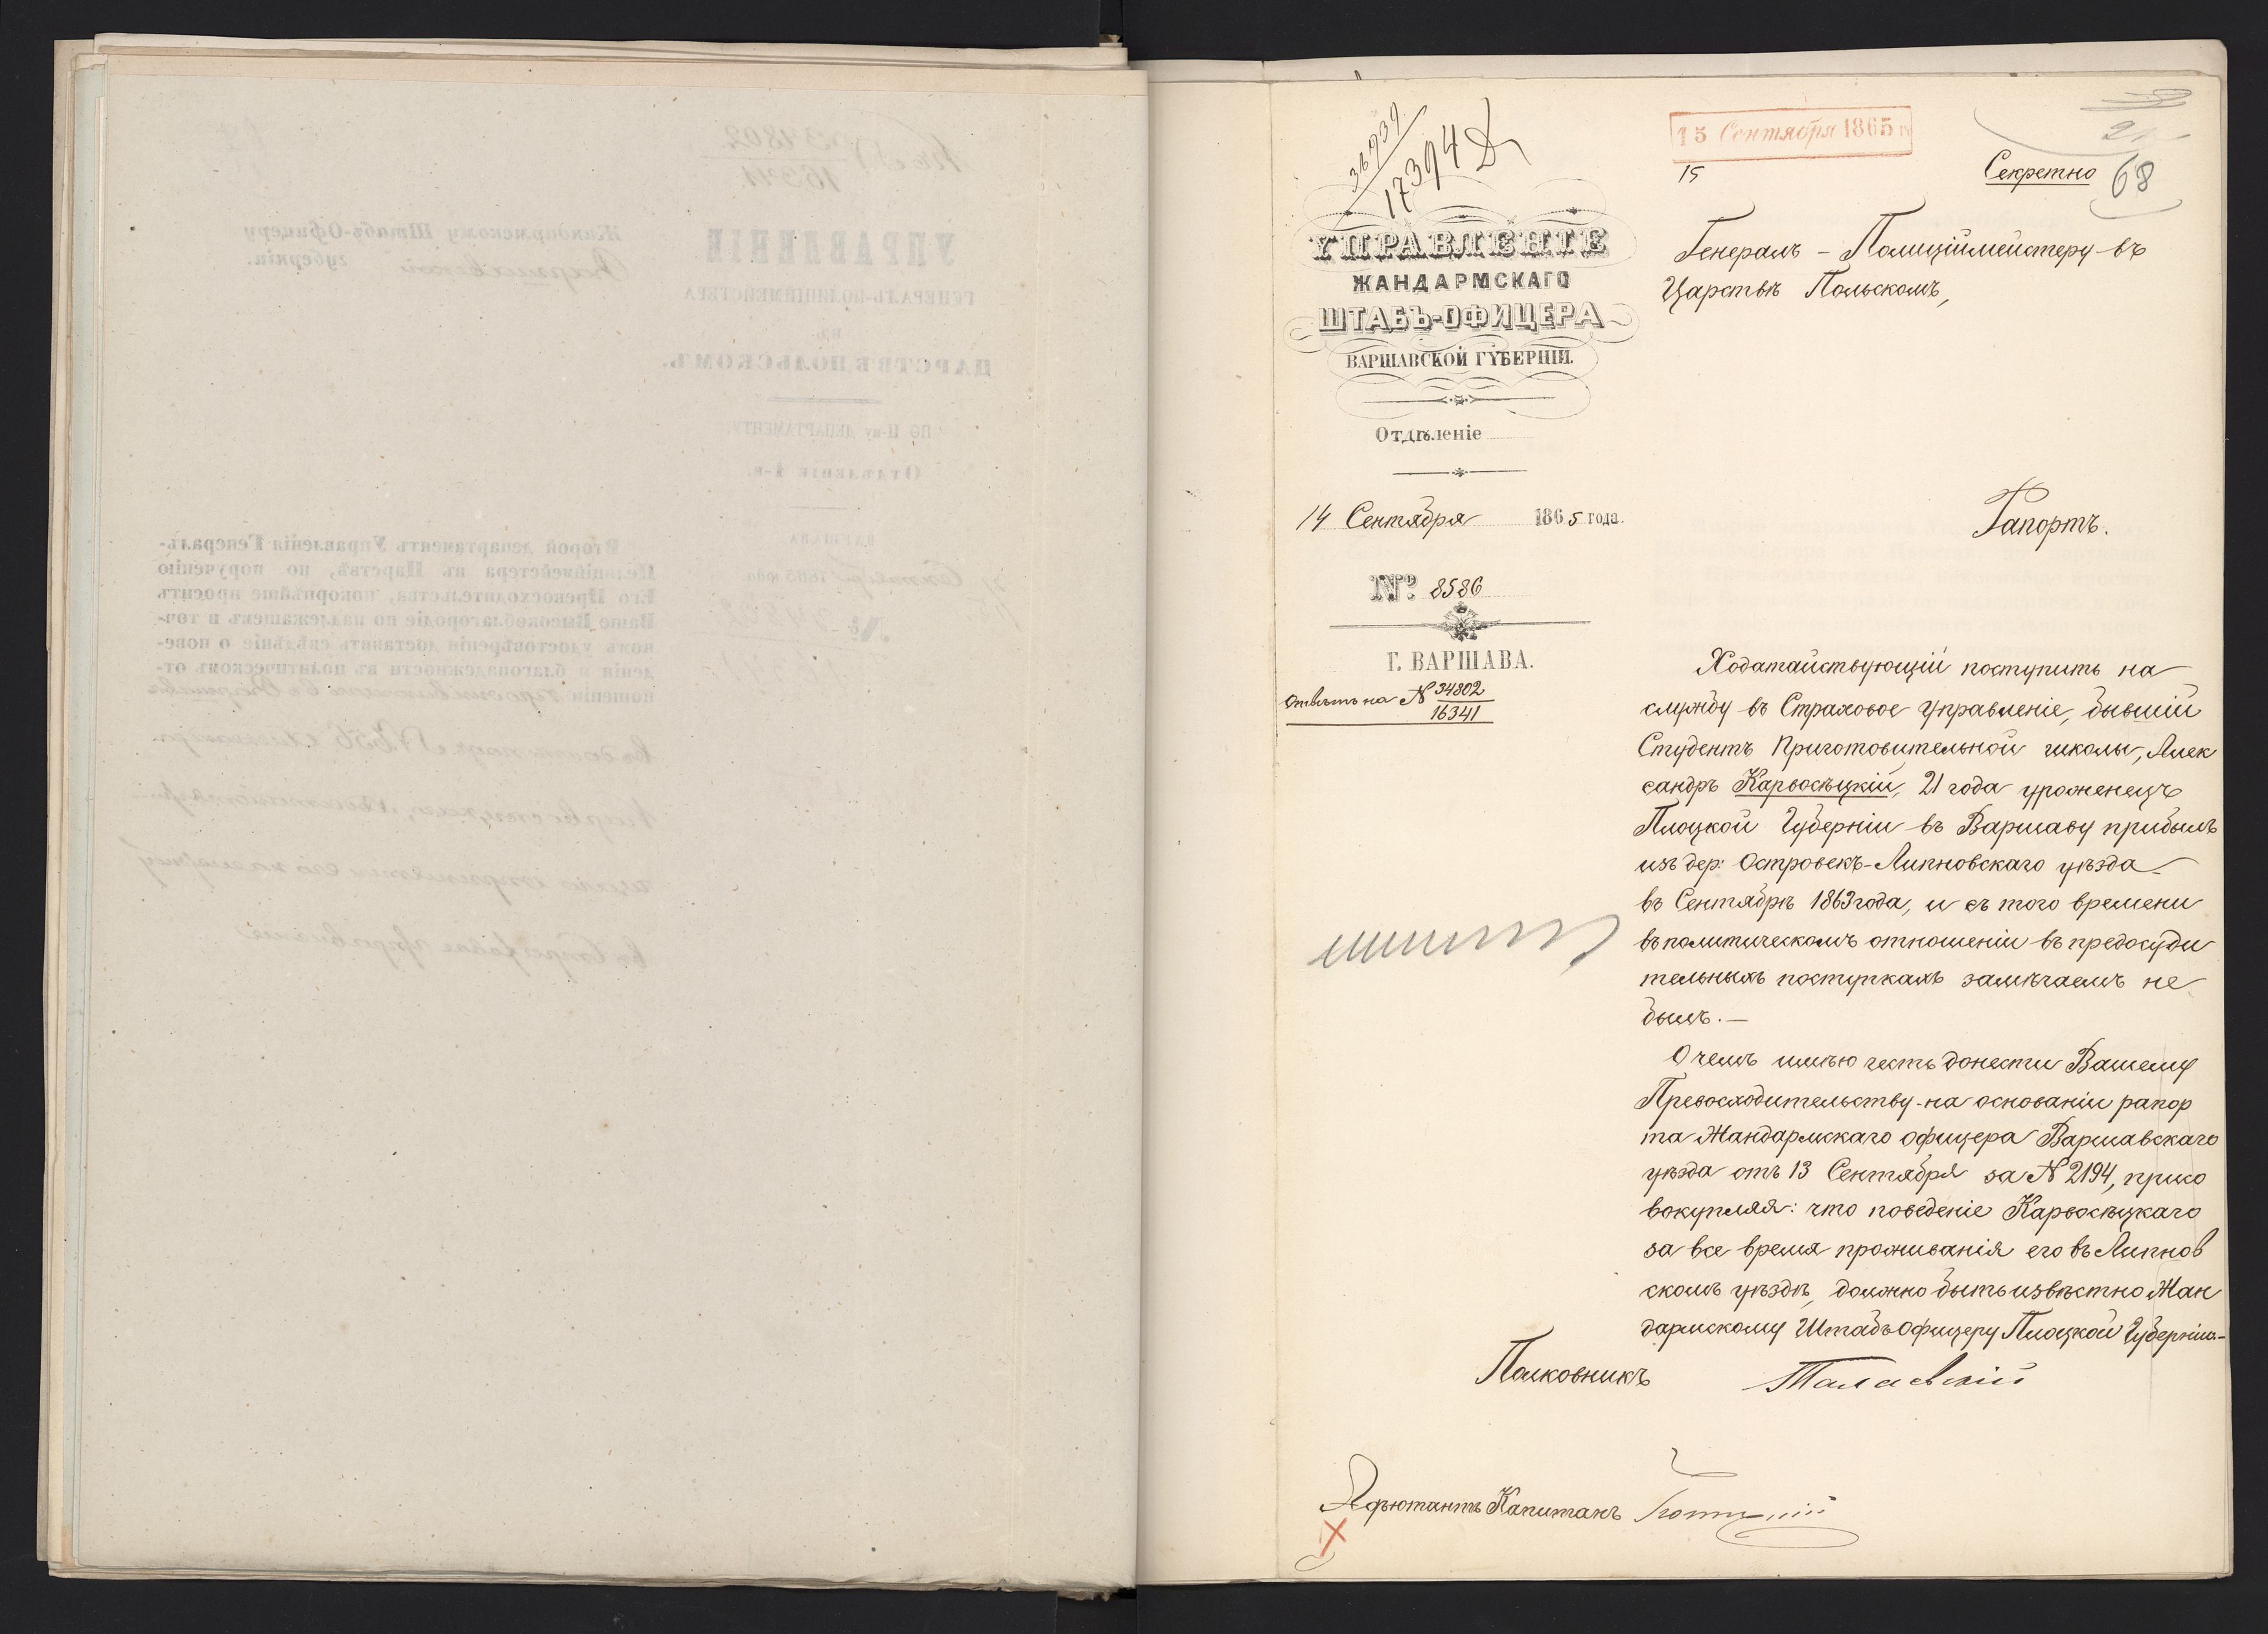 36939
17394
15 Сентября 1865
15
Секретно
68
УПРАВЛЕНІЕ
ЖАНДАРМСКАГО
ШТАБЪ-ОФИЦЕРА
ВАРШАВСКОЙ ГУБЕРНІИ.
Отдѣленіе
14 Сентября 1865 года.
№ 8586
Г. ВАРШАВА.
Отвѣтъ на № 34802
16341
Генералъ-Полиціймейстеру въ
Царствѣ Польскомъ,
Рапортъ.
Ходатайствующій поступить на
службу въ Страховое Управленіе, бывшій
Студентъ Приготовительной школы, Алек
сандръ Карвосѣцкій, 21 года уроженецъ
Плоцкой Губерніи въ Варшаву прибылъ
изъ дер: Островекъ-Липновскаго уѣзда
въ Сентябрѣ 1863 года, и съ того времени
въ политическомъ отношеніи въ предосуди
тельныхъ поступкахъ замѣчаемъ не
былъ.—
О чемъ имѣю честь донести Вашему
Превосходительству-на основаніи рапор
та Жандармскаго офицера Варшавскаго
уѣзда отъ 13 Сентября за № 2194, присо
вокупляя: что поведеніе Карвосѣцкаго
за все время проживанія его въ Липнов
скомъ уѣздѣ, должно быть извѣстно Жан
дармскому Штабъ Офицеру Плоцкой Губерніи.—
Полковникъ
Адъютантъ Капитанъ